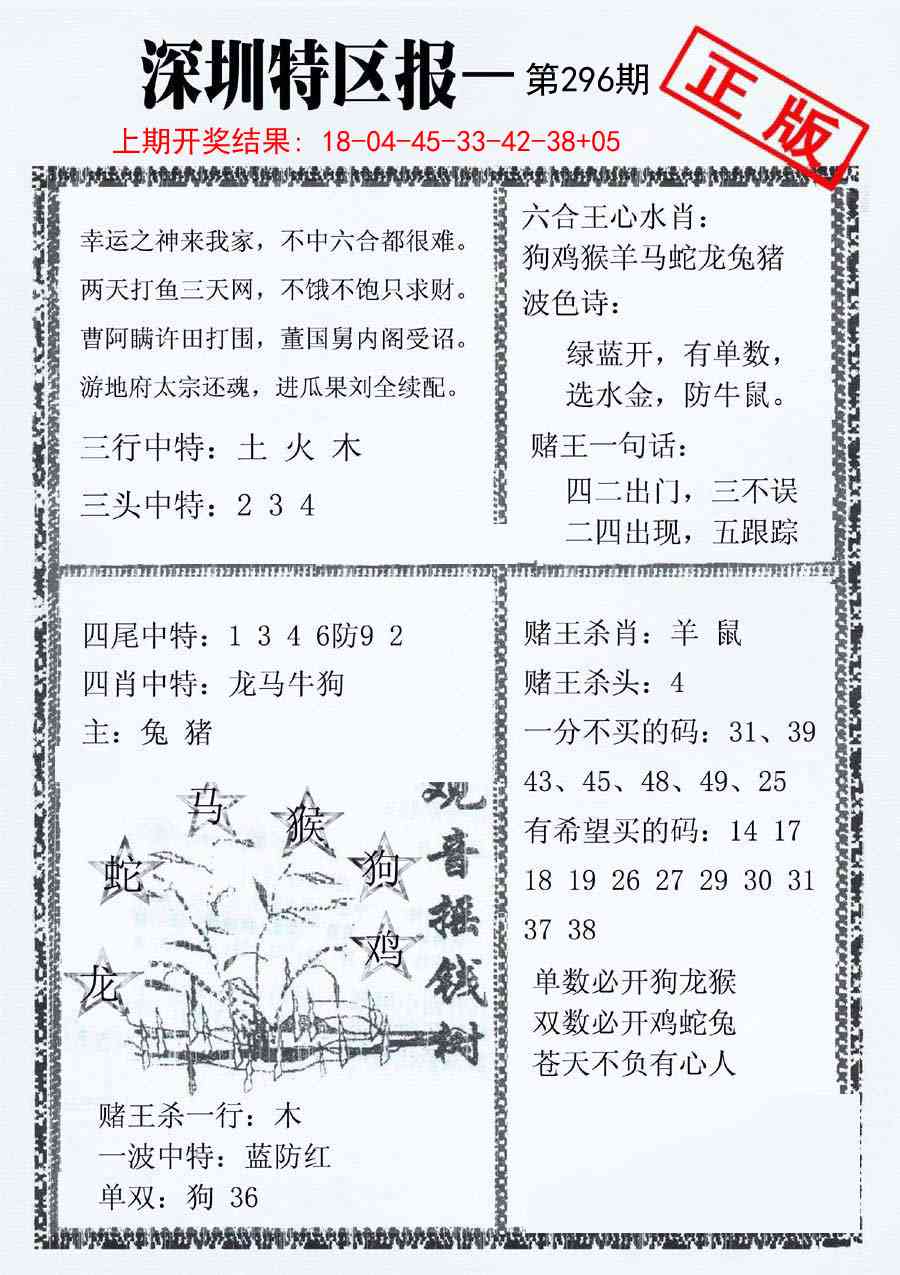 深圳特区报—第296期
正版
上期开奖结果：18-04-45-33-42-38+05
幸运之神来我家，不中六合都很难。
两天打鱼三天网，不饿不饱只求财。
曹阿瞒许田打围，董国舅内阁受诏。
游地府太宗还魂，进瓜果刘全续配。
三行中特：土 火 木
三头中特：2 3 4
六合王心水肖：
狗鸡猴羊马蛇龙兔猪
波色诗：
绿蓝开，有单数，
选水金，防牛鼠。
赌王一句话：
四二出门，三不误
二四出现，五跟踪
四尾中特：1 3 4 6防9 2
四肖中特：龙马牛狗
主：兔 猪
马
猴
蛇
狗
鸡
龙
观音摇钱树
赌王杀一行：木
一波中特：蓝防红
单双：狗 36
赌王杀肖：羊 鼠
赌王杀头：4
一分不买的码：31、39
43、45、48、49、25
有希望买的码：14 17
18 19 26 27 29 30 31
37 38
单数必开狗龙猴
双数必开鸡蛇兔
苍天不负有心人